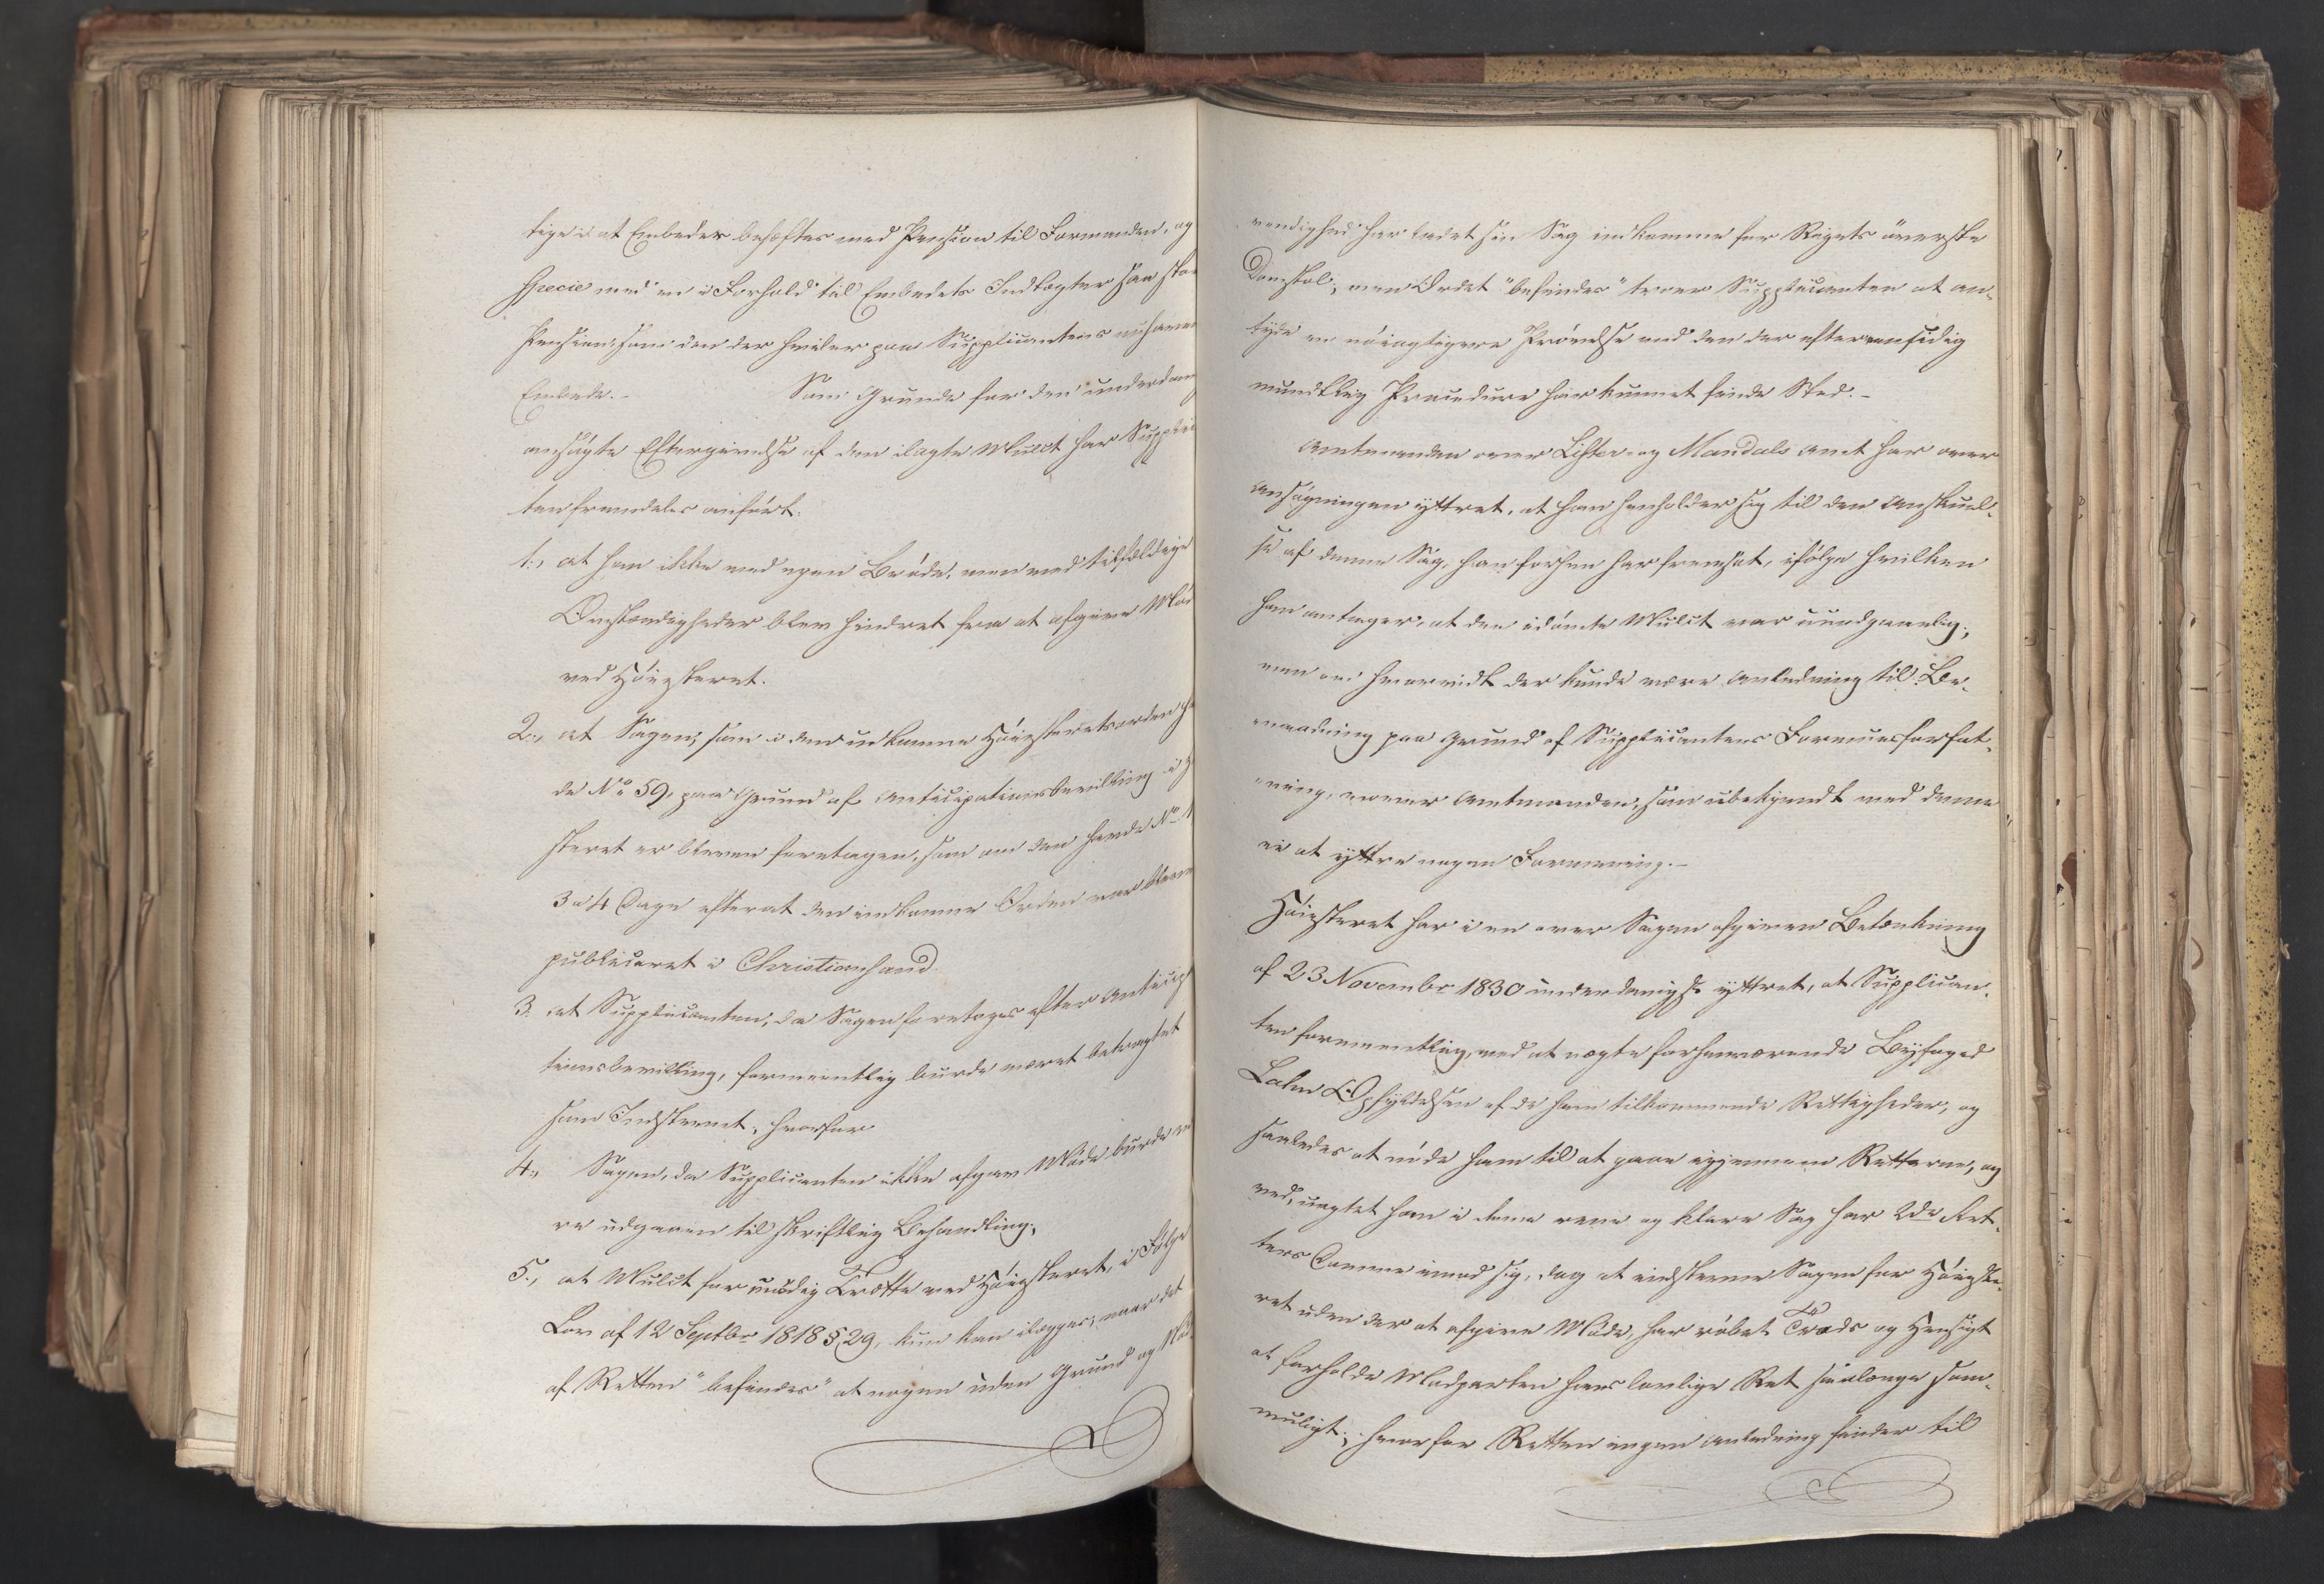 tige i at Embedet behæftes med Pension til Formanden, og
specie med en i Forhold til Embedets Indtægter saa stor
Pension som den der hviler paa Supplicantens nuhavende
Embede. – Som Grunde for den underdan
ansøgte Eftergivelse af den ilagte Mulct har Suppli
ten fremdeles anført:
1., at han ikke ved egen Brøde, men ved tilfældige
Omstændigheder blev hindret fra at afgive Møde
ved Høiesteret.
2., at Sagen, som i den udkomne Høiesteretsorden ha
de No 59, paa Grund af Anticipationsbevilling i H
steret er bleven foretagen, som om den havde No 1
3 a 4 Dage efterat den indkomne Orden var bleven
publiceret i Christiansand.
3. at Supplicanten, da Sagen foretoges efter Anticip
tionsbevilling, formeentlig burde været betragtet
som Indstevnt, hvorfor
4., Sagen, da Supplicanten ikke afgav Møde burde væ
re udgaaen til skriftlig Behandling;
5., at Mulct for unødig Trætte ved Høiesteret, i Følge
Lov af 12 Septbr 1818 § 29, kun kan ilægges, naar det
af Retten "befindes" at nogen uden Grund og Nød
vendighed har ladet sin Sag indkomme for Rigets øverste
Domstol; men Ordet "befindes" troer Supplicanten at an-
tyde en nøiagtigere Prøvelse end den der efter eensidig
mundtlig Procedure har kunnet finde Sted. –
Amtmanden over Lister- og Mandals Amt har over
Ansøgningen yttret, at han henholder sig til den Anskuel-
se af denne Sag, han forhen har fremsat, ifølge hvilken
han antager, at den idømte Mulct var uundgaaelig;
men om hvorvidt der kunde være Anledning til Be-
naadning paa Grund af Supplicantens Formuesforfat-
ning, vover Amtmanden, som ubekjendt med denne
ei at yttre nogen Formening. –
Høiesteret har i en over Sagen afgiven Betænkning
af 23 November 1830 underdanigst yttret, at Supplican-
ten formeentlig, ved at nægte forhenværende Byfoged
Lalm Opfyldelsen af de ham tilkommende Rettigheder, og
saaledes at nøde ham til at gaae igjennem Retterne, og
ved, uagtet han i denne rene og klare Sag har 2de Ret-
ters Domme imod sig, dog at indstevne Sagen for Høieste-
ret uden der at afgive Møde, har røbet Trods og Hensigt
at forholde Modparten hans lovlige Ret saalænge som
muligt; hvorfor Retten ingen Anledning finder til